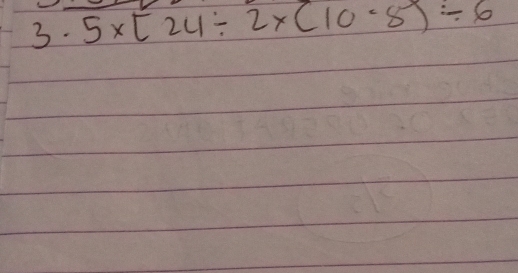 3. 5×[ 24÷ 2×(10-8) ÷ 6